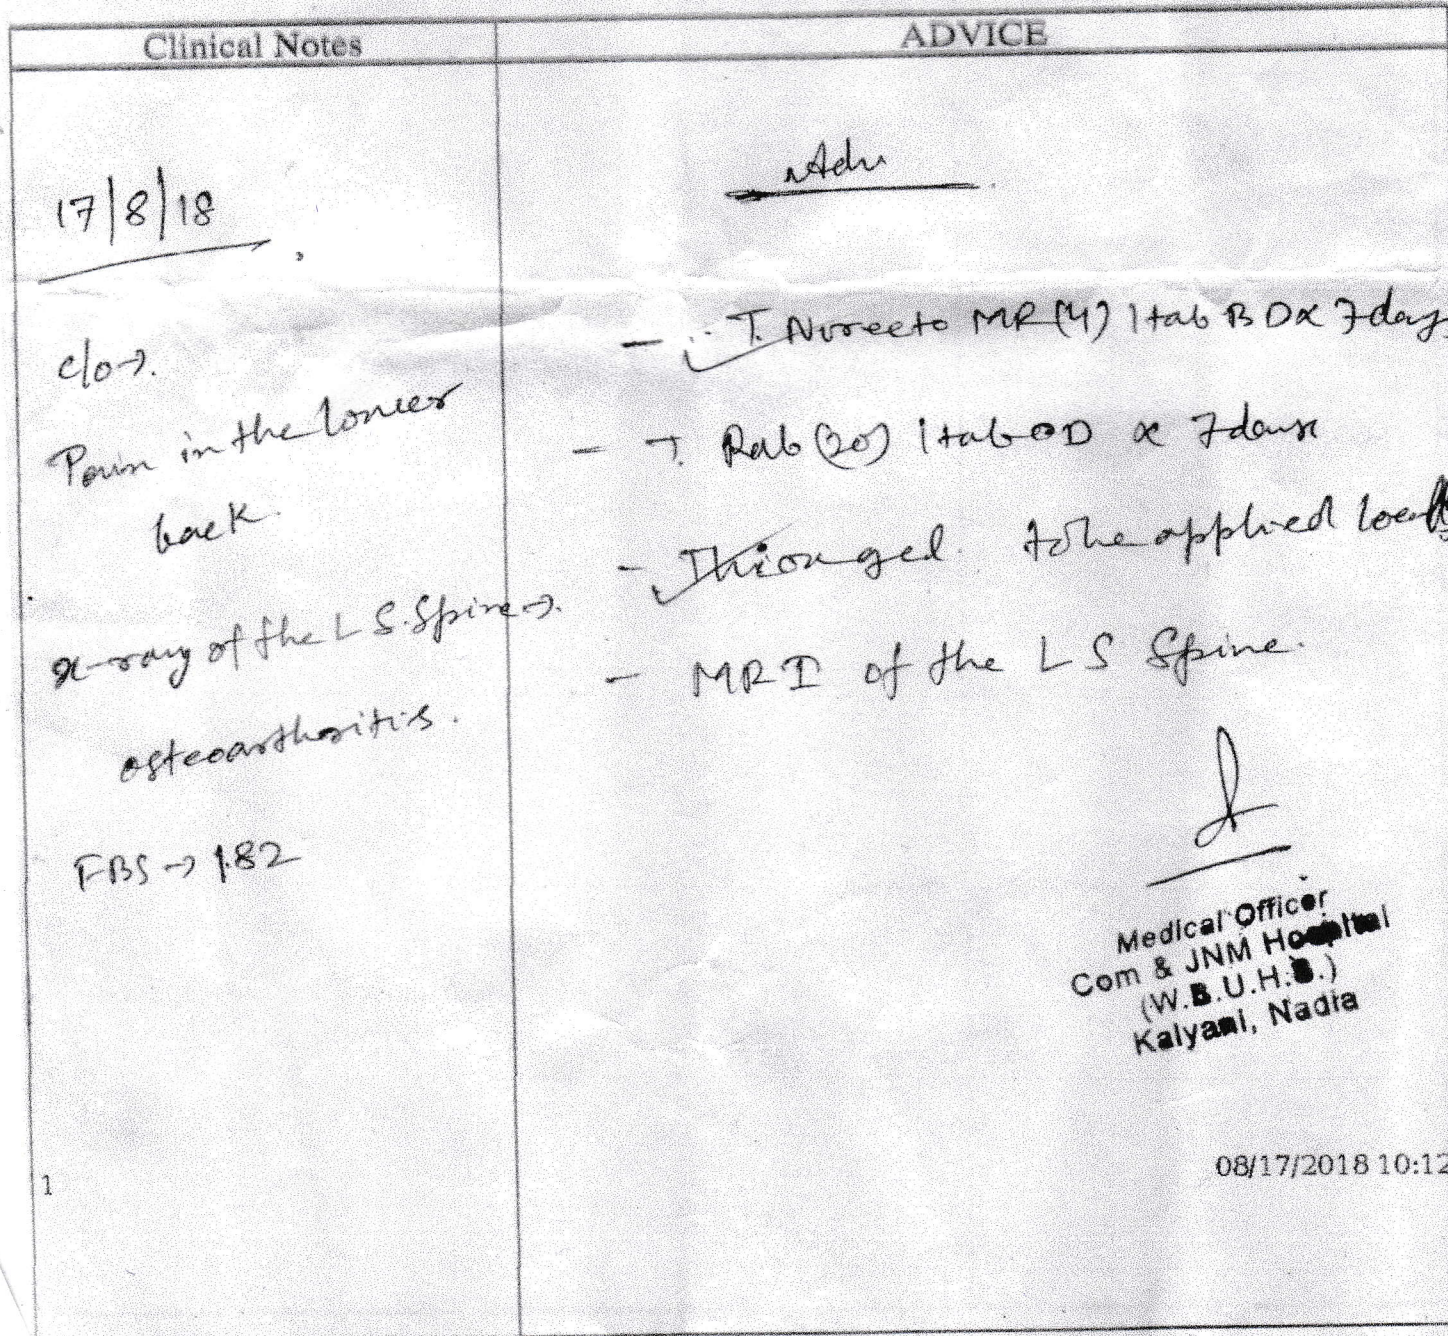 Clinical Notes
ADVICE
17/8/18
c/o →.
Pain in the lower
back.
x-ray of the L S. Spine →.
osteoarthoritis.
FBS → 182
Adv
- T. MR (4) 1 tab BD x 7 days
- T. Rab (20) 1 tab OD x 7 days
- gel. to be applied locally
- MRI of the L S Spine.
Medical Officer
Com & JNM Hospital
(W.B.U.H.S.)
Kalyani, Nadia
1
08/17/2018 10:12